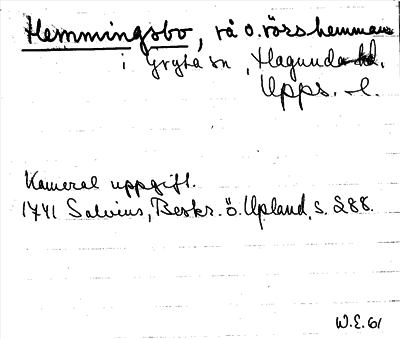 Hemmingsbo, rå o. rörs hemman
i Gryta sn, Hagunda hd.
Upps. l.
Kameral uppgift.
1741 Salvius, Beskr. ö. Upland, s. 288.
W.E. 61